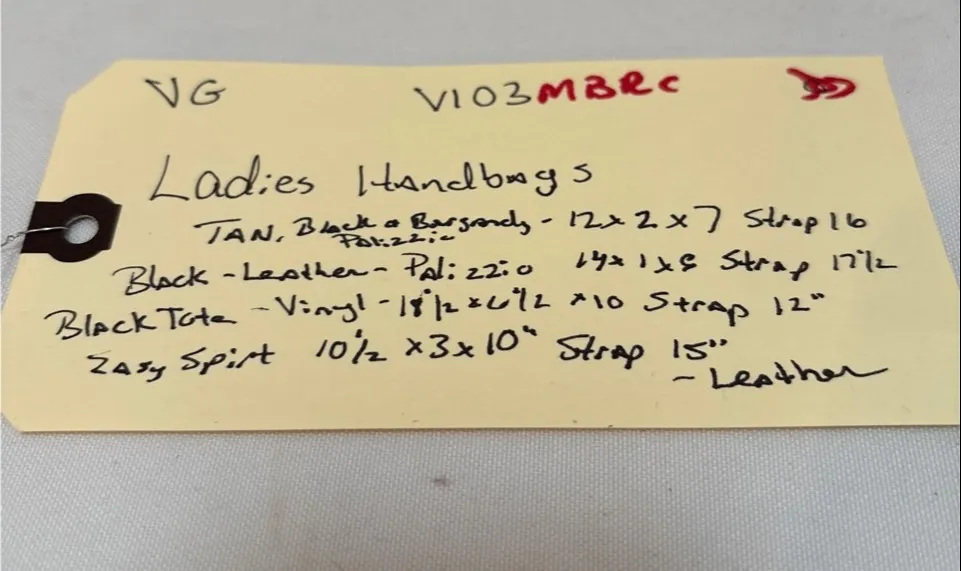 VG V103MBRC
Ladies Handbags
TAN, Black & Burgandy - 12 x 2 x 7 Strap 16
Palizzio
Black - Leather - Palizzio 14 x 1 x 8 Strap 17 1/2
Black Tote - Vinyl - 18 1/2 x 6 1/2 x 10 Strap 12"
Easy Spirt 10 1/2 x 3 x 10" Strap 15"
- Leather